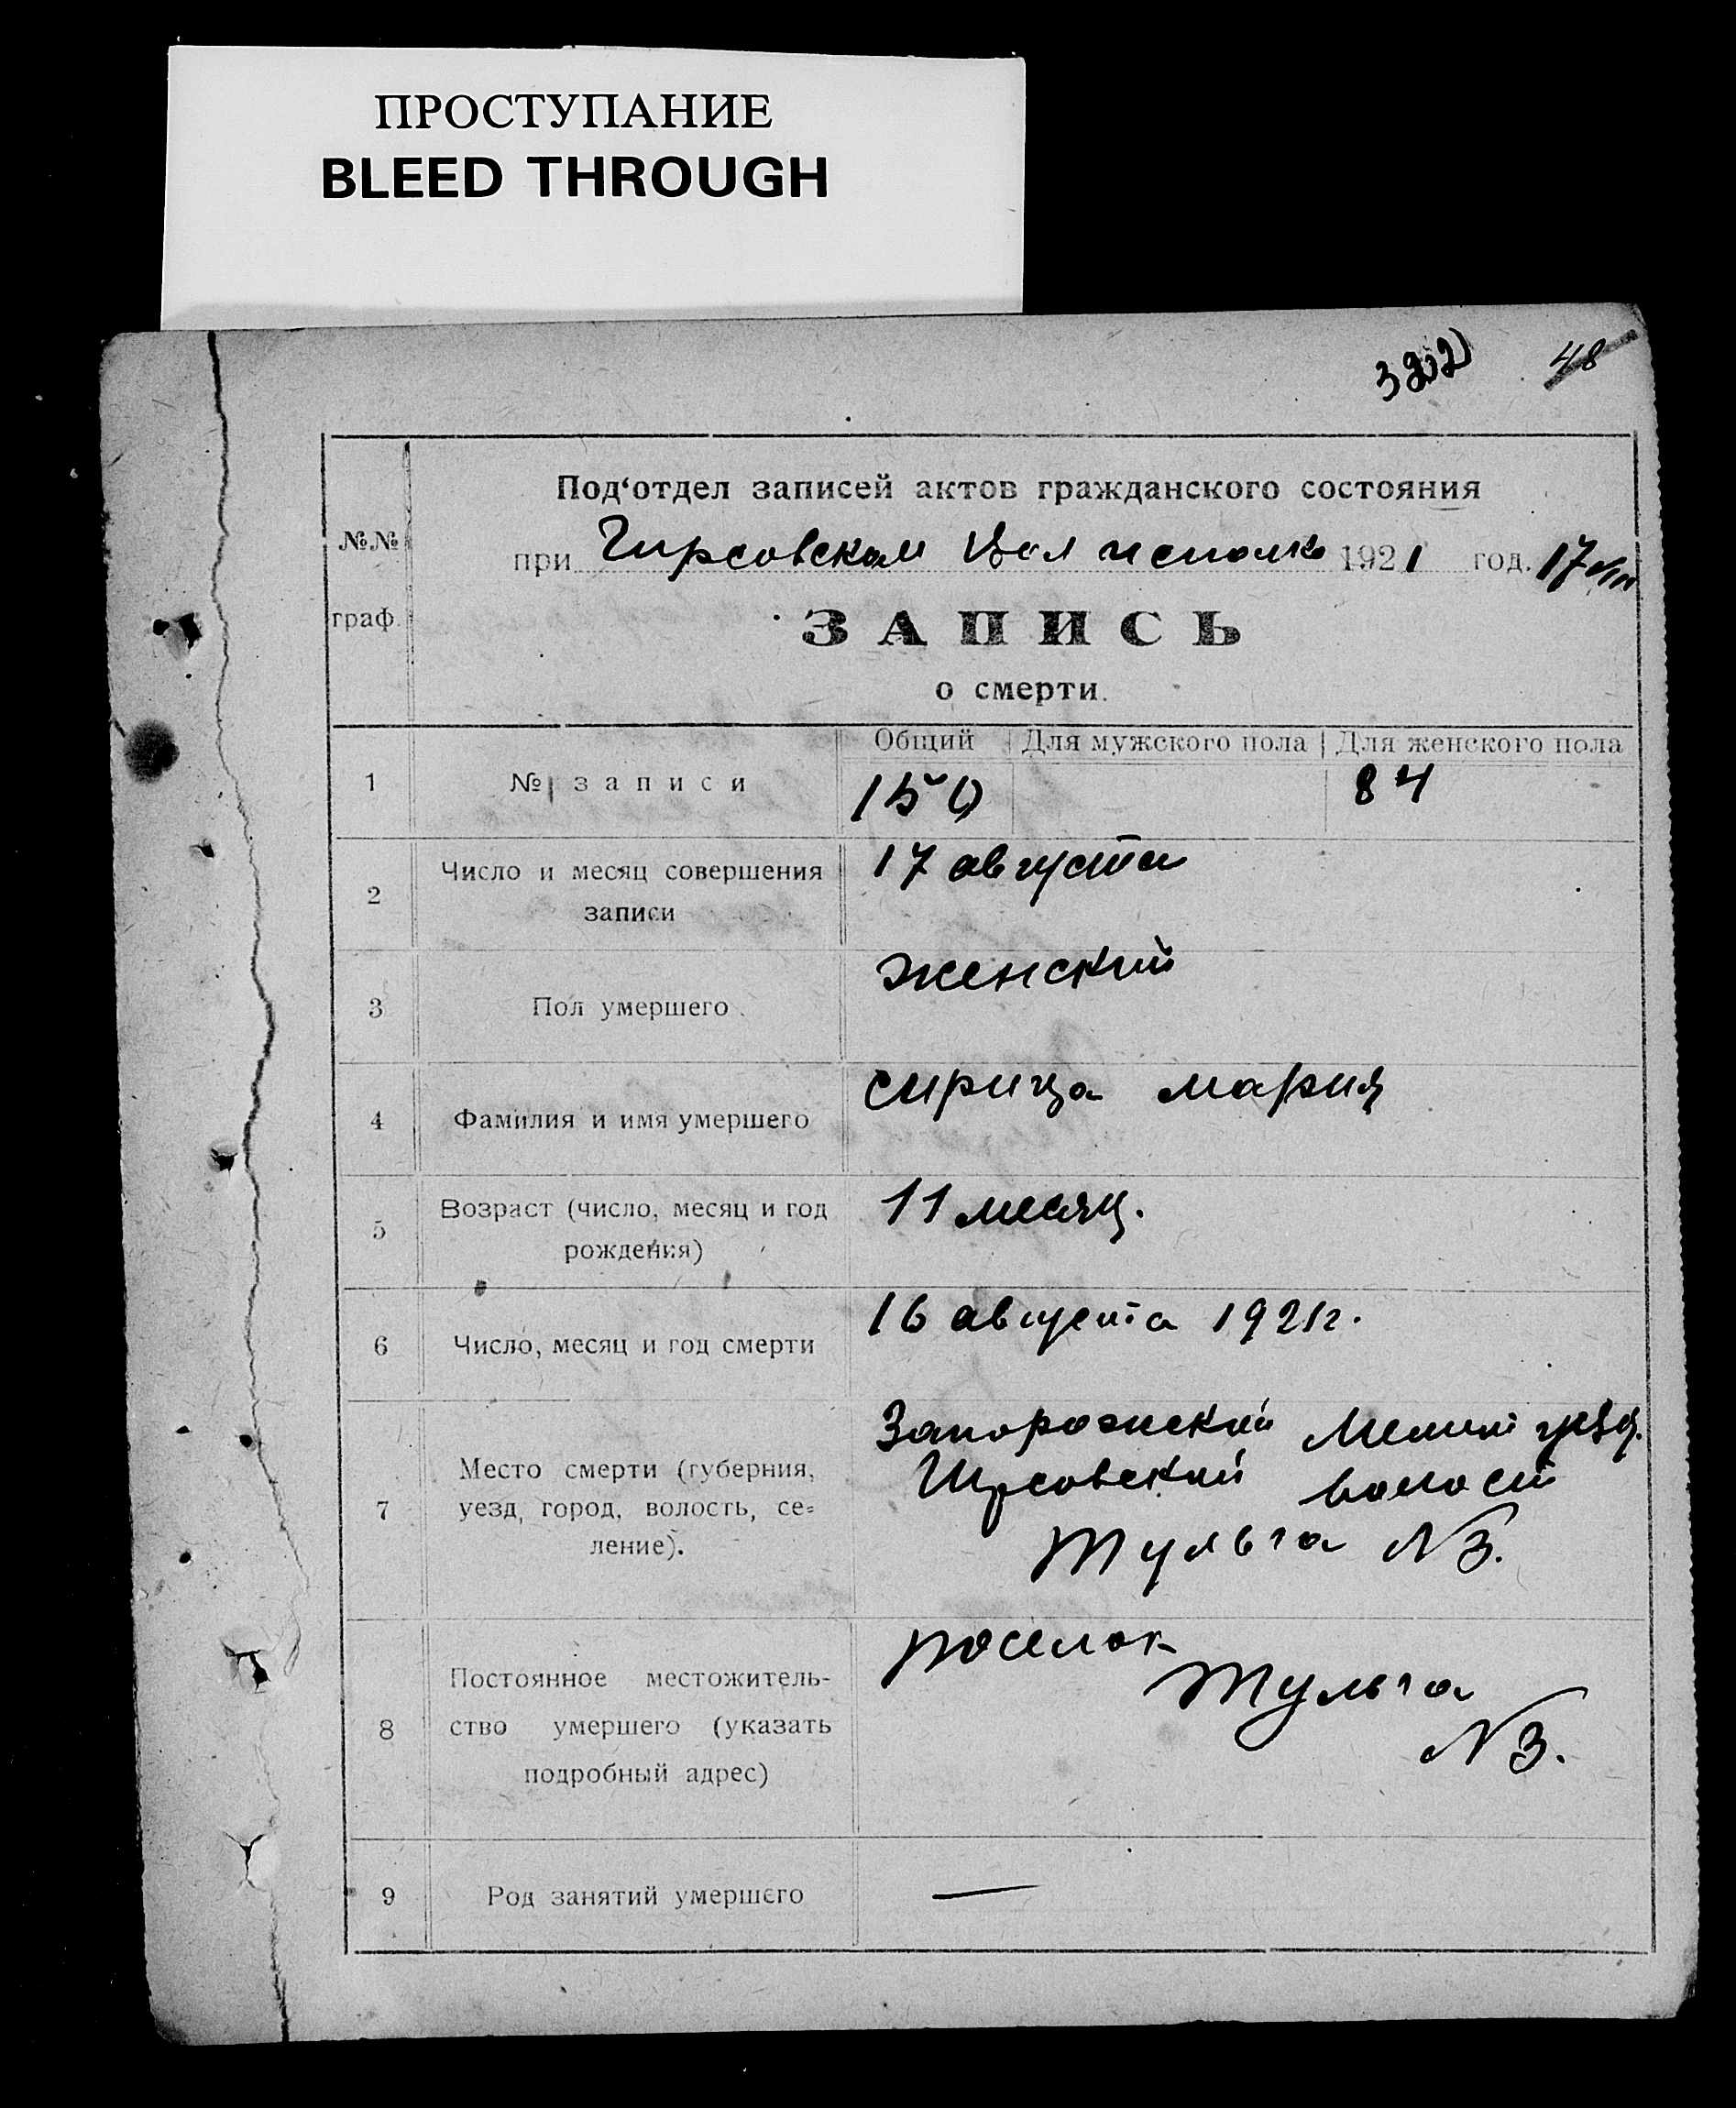 ПРОСТУПАНИЕ
BLEED THROUGH
48
№№ граф.
Под'отдел записей актов гражданского состояния
при Гирсовском Вол исполк 1921 год. 17/VIII
ЗАПИСЬ
о смерти.
Общий Для мужского пола Для женского пола
1 № записи 150 84
2 Число и месяц совершения 17 августа
записи
3 Пол умершего. женский
4 Фамилия и имя умершего Сирица Мария
5 Возраст (число, месяц и год 11 месяц.
рождения)
6 Число, месяц и год смерти 16 августа 1921г.
7 Место смерти (губерния, Запорожский Мелит уезд.
уезд, город, волость, се= волост
ление). Тульга N3.
8 Постоянное местожитель- поселок
ство умершего (указать Тульга
подробный адрес) N3.
9 Род занятий умершего —